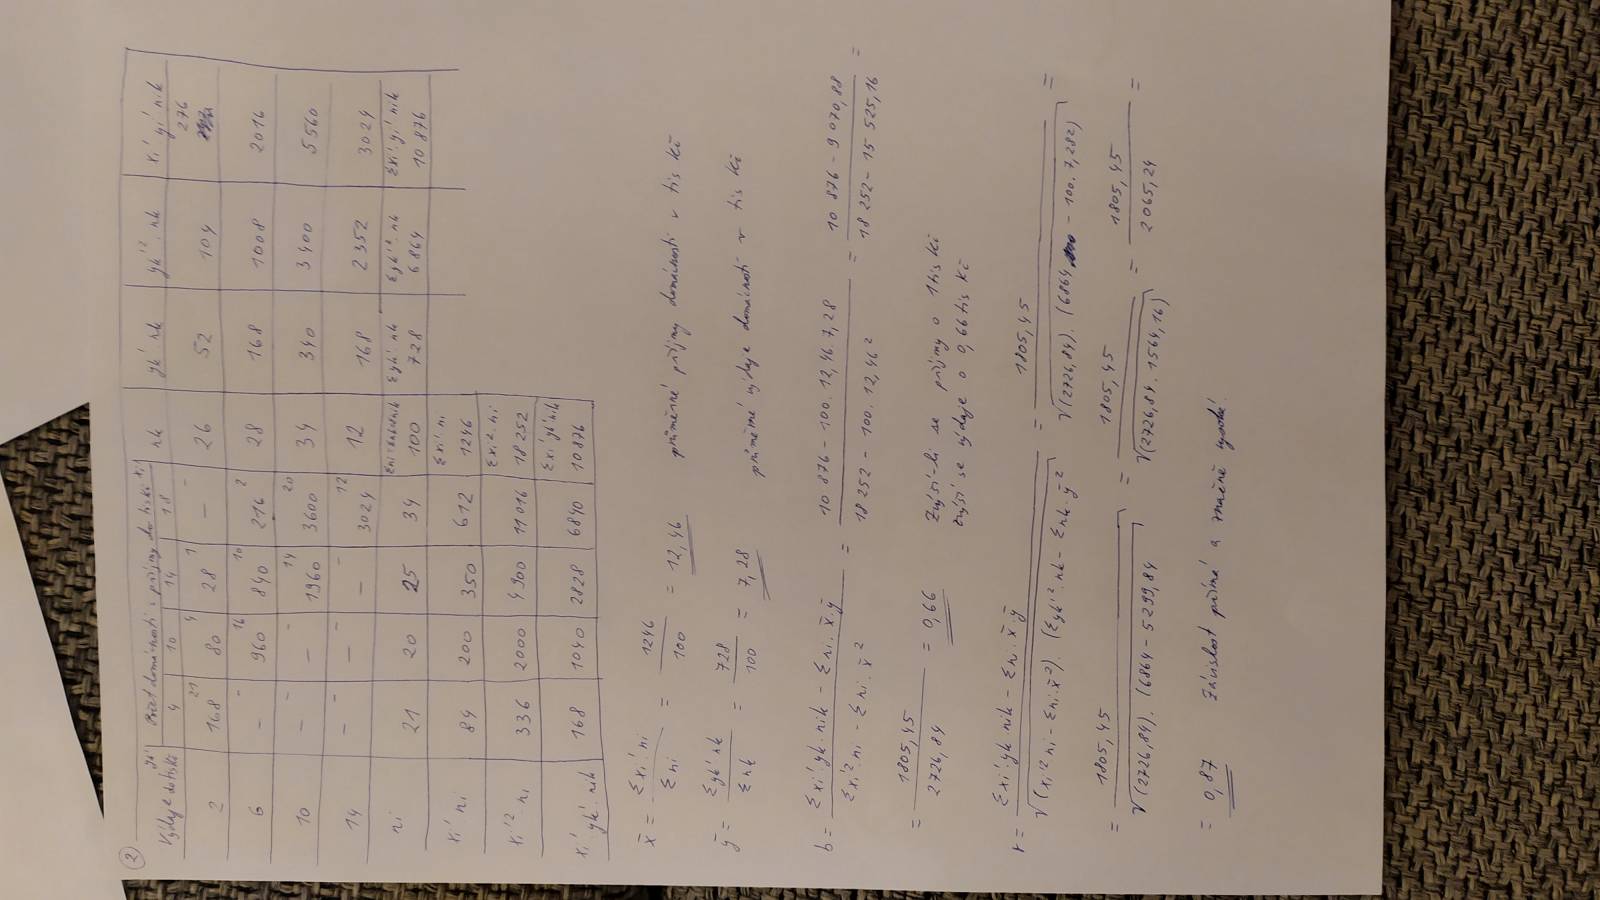 ②
Výdaje do tis Kč yk' Počet domácností s příjmy do tis Kč xi' nk yk' nk yk'² . nk xi' yi' nik
4 10 14 18
2 168 21 80 4 28 1 – – 26 52 104 276
6 – – 960 16 840 10 216 2 28 168 1008 2016
10 – – – – 1960 14 3600 20 34 340 3400 5560
14 – – – – – – 3024 12 12 168 2352 3024
ni 21 20 25 34 100 Σyk' nk 728 Σyk'². nk 6864 Σxi' yi' nik 10 876
xi' ni 84 200 350 612 Σxi' . ni 1246
xi'² . ni 336 2000 4900 11016 Σxi'². ni 18 252
xi' . yk' . nik 168 1040 2828 6840 Σxi' yk' nik 10876
x̄ = Σxi' . ni / Σ ni = 1246 / 100 = 12,46 průměrné příjmy domácností v tis Kč
ȳ = Σyk' nk / Σ nk = 728 / 100 = 7,28 průměrné výdaje domácností v tis Kč
b = Σxi' yk . nik - Σ ni . x̄ . ȳ / Σxi'² . ni - Σ ni . x̄² = 10 876 - 100 . 12,46 . 7,28 / 18 252 - 100 . 12,46² = 10 876 - 9 070,88 / 18 252 - 15 525,16 =
= 1805,45 / 2726,84 = 0,66 Zvýší-li se příjmy o 1 tis Kč
zvýší se výdaje o 0,66 tis Kč
r = Σxi' yk . nik - Σ ni . x̄ . ȳ / √(xi'² ni - Σni . x̄²) . (Σyk'² . nk - Σnk ȳ² = 1805,45 / √(2726,84) . (6864 - 100 . 7,282) =
= 1805,45 / √(2726,84) . (6864 - 5299,84 = 1805,45 / √(2726,84 . 1564,16) = 1805,45 / 2065,24 =
= 0,87 Závislost přímá a značně